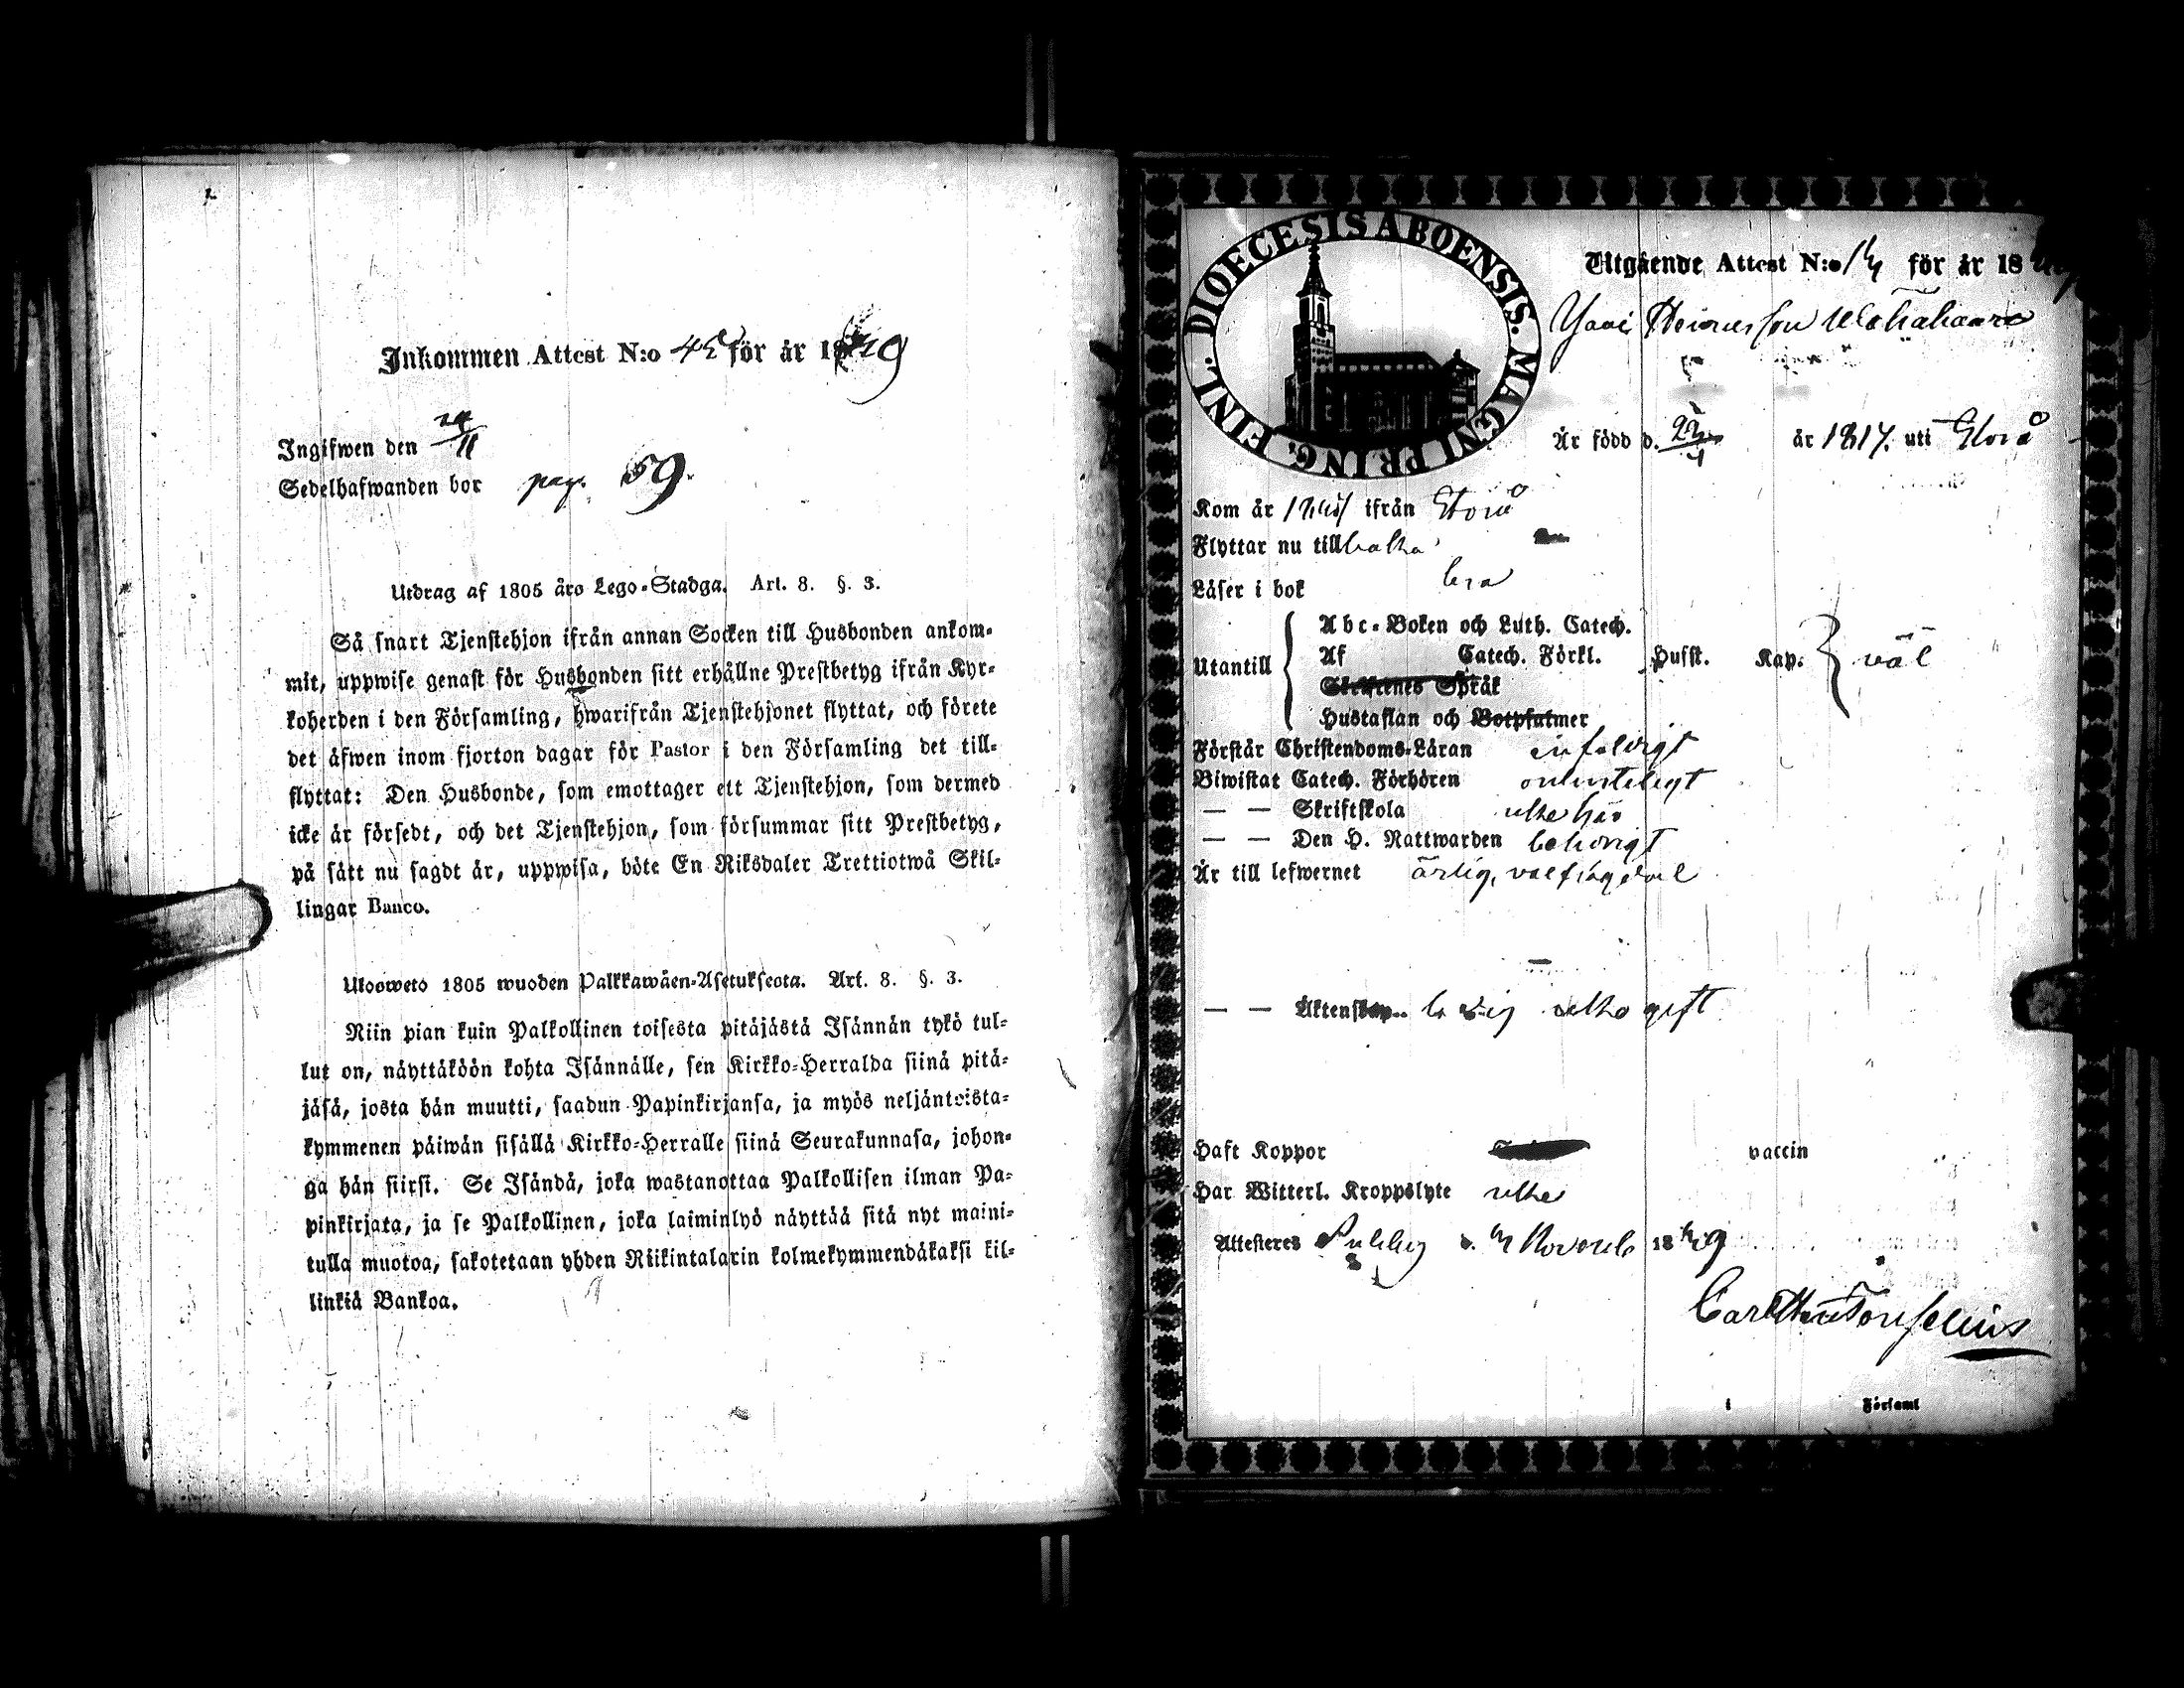 Inkommen Attest N:o 42 för år 1849
Ingifwen den 24/11
Sedelhafwanden bor pag. 59.
Utdrag af 1805 års Lego-Stadga. Art. 8. §. 3.
Så snart Tjenstehjon ifrån annan Socken till Husbonden ankom-
mit, uppwise genast för Husbonden sitt erhållne Prestbetyg ifrån Kyr-
koherden i den Församling, hwarifrån Tjenstehjonet flyttat, och förete
det äfwen inom fjorton dagar för Pastor i den Församling det till-
flyttat: Den Husbonde, som emottager ett Tjenstehjon, som dermed
icke är försedt, och det Tjenstehjon, som försummar sitt Prestbetyg,
på sätt nu sagdt är, uppwisa, böte En Riksdaler Trettiotwå Skil-
lingar Banco.
Ulosweto 1805 wuoden Palkkawäen-Asetuksesta. Art. 8. §. 3.
Niin pian kuin Palkollinen toisesta pitäjästä Isännän tykö tul-
lut on, näyttäköön kohta Isännälle, sen Kirkko-Herralda siinä pitä-
jäsä, josta hän muutti, saadun Papinkirjansa, ja myös neljäntoista-
kymmenen päiwän sisällä Kirkko-Herralle siinä Seurakunnasa, johon-
ga hän siirsi. Se Isändä, joka wastanottaa Palkollisen ilman Pa-
pinkirjata, ja se Palkollinen, joka laiminlyö näyttää sitä nyt maini-
tulla muotoa, sakotetaan yhden Riikintalarin kolmekymmendäkaksi kil-
linkiä Bankoa.
DIOECESIS ABOENSIS. MAGNI PRINC. FINL.
Utgående Attest N:o för år 18
Är född d. 22/4 år 1817. uti Storå
Kom år ifrån Storå
Flyttar nu till
Läser i bok bra
Abc-Boken och Luth. Catech.
Utantill Af Catech. Förkl. Husst. Kap. väl
Skriftenes Språk
Hustaflan och Botpsalmer
Förstår Christendoms-Läran enfaldigt
Biwistat Catech. Förhören
— — Skriftskola
— — Den H. Nattwarden behörigt
Är till lefwernet ärlig, välfrägdad
— — Äktenskap ledig gift
Haft Koppor vaccin
Har Witterl. Kroppslyte
Attesteres d. Novemb 1849
Carl
i Församl